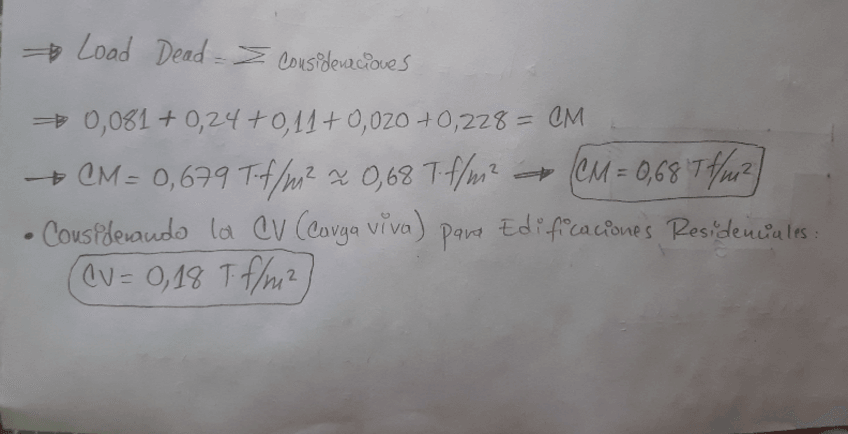 ⇒ Load Dead = Σ Consideraciones
⇒ 0,081 + 0,24 + 0,11 + 0,020 + 0,228 = CM
→ CM = 0,679 T.f/m² ≈ 0,68 T.f/m² → CM = 0,68 Tf/m²
• Considerando la CV (Carga viva) para Edificaciones Residenciales:
CV = 0,18 T.f/m²